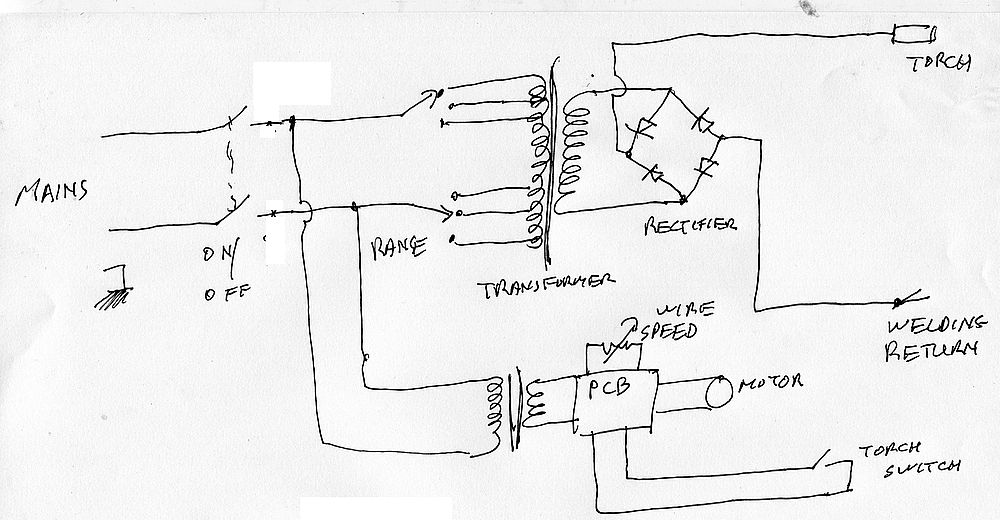 TORCH
MAINS
ON/
OFF
RANGE
RECTIFIER
TRANSFORMER
WIRE
SPEED
WELDING
RETURN
PCB
MOTOR
TORCH
SWITCH